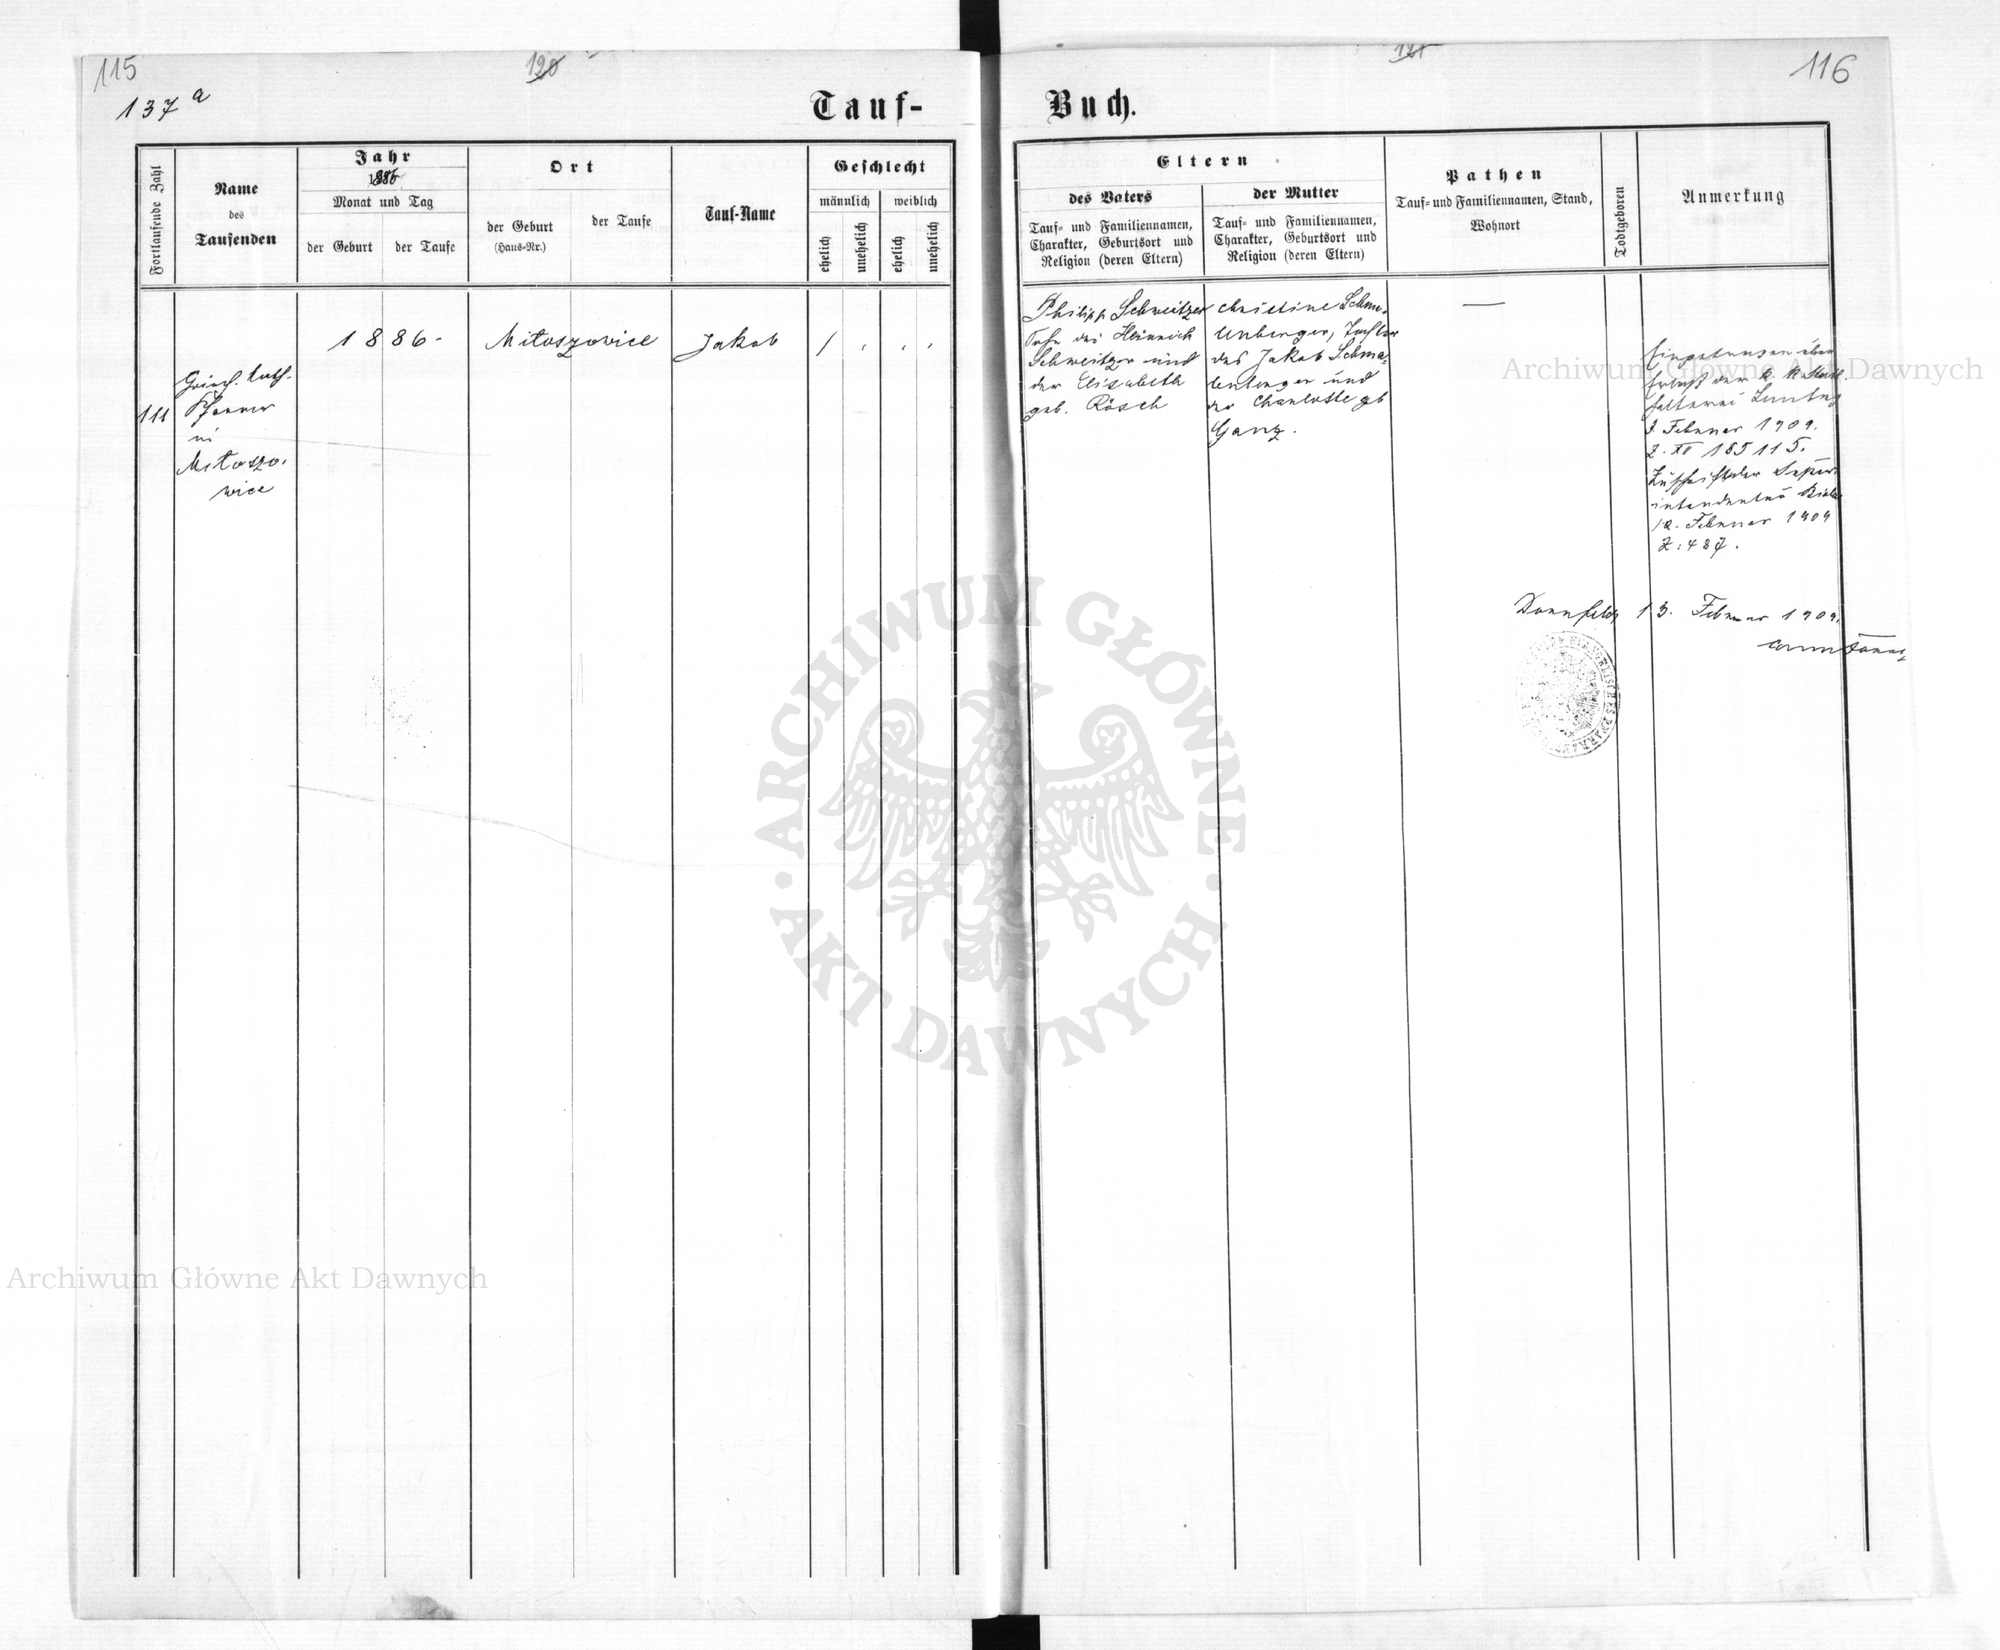 115
120
137 a
Tauf-
Fortlaufende Zahl
Name
des
Taufenden
Jahr
1886
Monat und Tag
der Geburt
der Taufe
Ort
der Geburt
(Haus-Nr.)
der Taufe
Tauf-Name
Geschlecht
männlich
weiblich
ehelich
unehelich
ehelich
unehelich
111
Griech. kath.
Pfarrer
in
Miłoszo-
wice
1886.
Miłoszowice
Jakob
/
121
116
Buch.
Eltern
des Vaters
Tauf- und Familiennamen,
Charakter, Geburtsort und
Religion (deren Eltern)
der Mutter
Tauf- und Familiennamen,
Charakter, Geburtsort und
Religion (deren Eltern)
Pathen
Tauf- und Familiennamen, Stand,
Wohnort
Todtgeboren
Anmerkung
Philipp Schweitzer
Sohn des Heinrich
Schweitzer und
der Elisabeth
geb. Rösch
Christine Schma-
lenberger, Tochter
des Jakob Schma-
lenberger und
der Charlotte gb
Ganz.
—
Eingetragen über
Erlaß der k. k. Statt-
halterei
Februar 1909.
Z. XI 185115.
Zuschrift der Super-
intendentur Biala
12. Februar 1909
Z: 487.
Dornfeld, 13. Februar 1909.
Archiwum Główne Akt Dawnych
ARCHIWUM GŁÓWNE · AKT DAWNYCH ·
Archiwum Główne Akt Dawnych